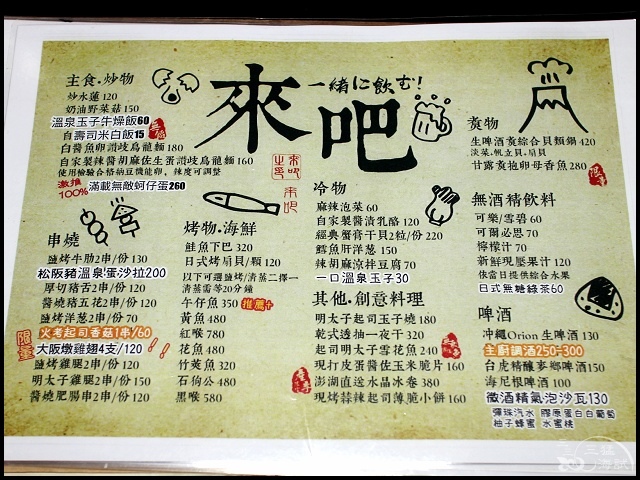 來吧
一緒に飲む!
主食.炒物
炒水蓮 120
奶油野菜菇 150
溫泉玉子牛燥飯60
自壽司米白飯15
白醬魚卵讃岐烏龍麵 180
自家製辣醬胡麻佐生蛋讃岐烏龍麵 160
激推100%
滿載無敵蚵仔蛋260
串燒
鹽烤牛肋2串/份 130
松阪豬溫泉蛋沙拉200
厚切豬舌2串/份 120
醬燒豬五花2串/份 120
鹽烤洋蔥2串/份 70
火考起司香菇1串/60
限量
大阪燉雞翅4支/120 !!
鹽烤雞腿2串/份 120
明太子雞腿2串/份 150
醬燒肥腸串2串/份 120
烤物.海鮮
鮭魚下巴 320
日式烤扇貝/顆 120
以下可選鹽烤/清蒸二擇一
清蒸需等20分鐘
午仔魚 350 推薦
黃魚 480
紅喉 780
花魚 480
竹莢魚 320
石狗公 480
黑喉 580
冷物
麻辣泡菜 60
自家製醬漬乳酪 120
經典蟹膏干貝2粒/份 220
鱈魚肝洋蔥 150
辣胡麻涼拌豆腐 70
一口溫泉玉子30
其他.創意料理
明太子起司玉子燒 180
乾式透抽一夜干 320
起司明太子雪花魚 240
現打皮蛋醬佐玉米脆片 160
澎湖直送水晶冰卷 380
現烤蒜辣起司薄脆小餅 160
煑物
生啤酒煑綜合貝類鍋 420
淡菜.帆立貝.扇貝
甘露煑抱卵母香魚 280
無酒精飲料
可樂/雪碧 60
可爾必思 70
檸檬汁 70
新鮮現壓果汁 120
依當日提供綜合水果
日式無糖綠茶60
啤酒
沖繩Orion生啤酒 130
主廚調酒250-300
台虎精釀麥鄉啤酒 150
海尼根啤酒 100
微酒精氣泡沙瓦130
彈珠汽水 膠原蛋白白葡萄
柚子蜂蜜 水蜜桃